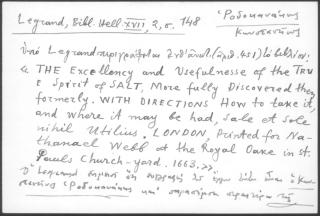 Legrand, Bibl. Hell. XVII, 2, σ. 148
Ῥοδοκανάκης
Κωνσταντῖνος
Ὑπό Legrand περιγράφεται ἐνθ' ἀνωτ. (ἀριθ. 451) τό βιβλίον:
« THE Excellency and Usefulnesse of the TRUE
Spirit of SALT, More fully Discovered then
formerly. WITH DIRECTIONS How to take it,
and where it may be had, Sale et Sole
nihil Utilius. LONDON, Printed for Na-
thanael Webb at the Royal Oake in st.
Pauls Church-yard. 1663.»
Ὁ Legrand ὅτι συγγραφεύς τοῦ ἔργου εἶναι ὁ Κων-
σταντῖνος Ῥοδοκανάκης καί